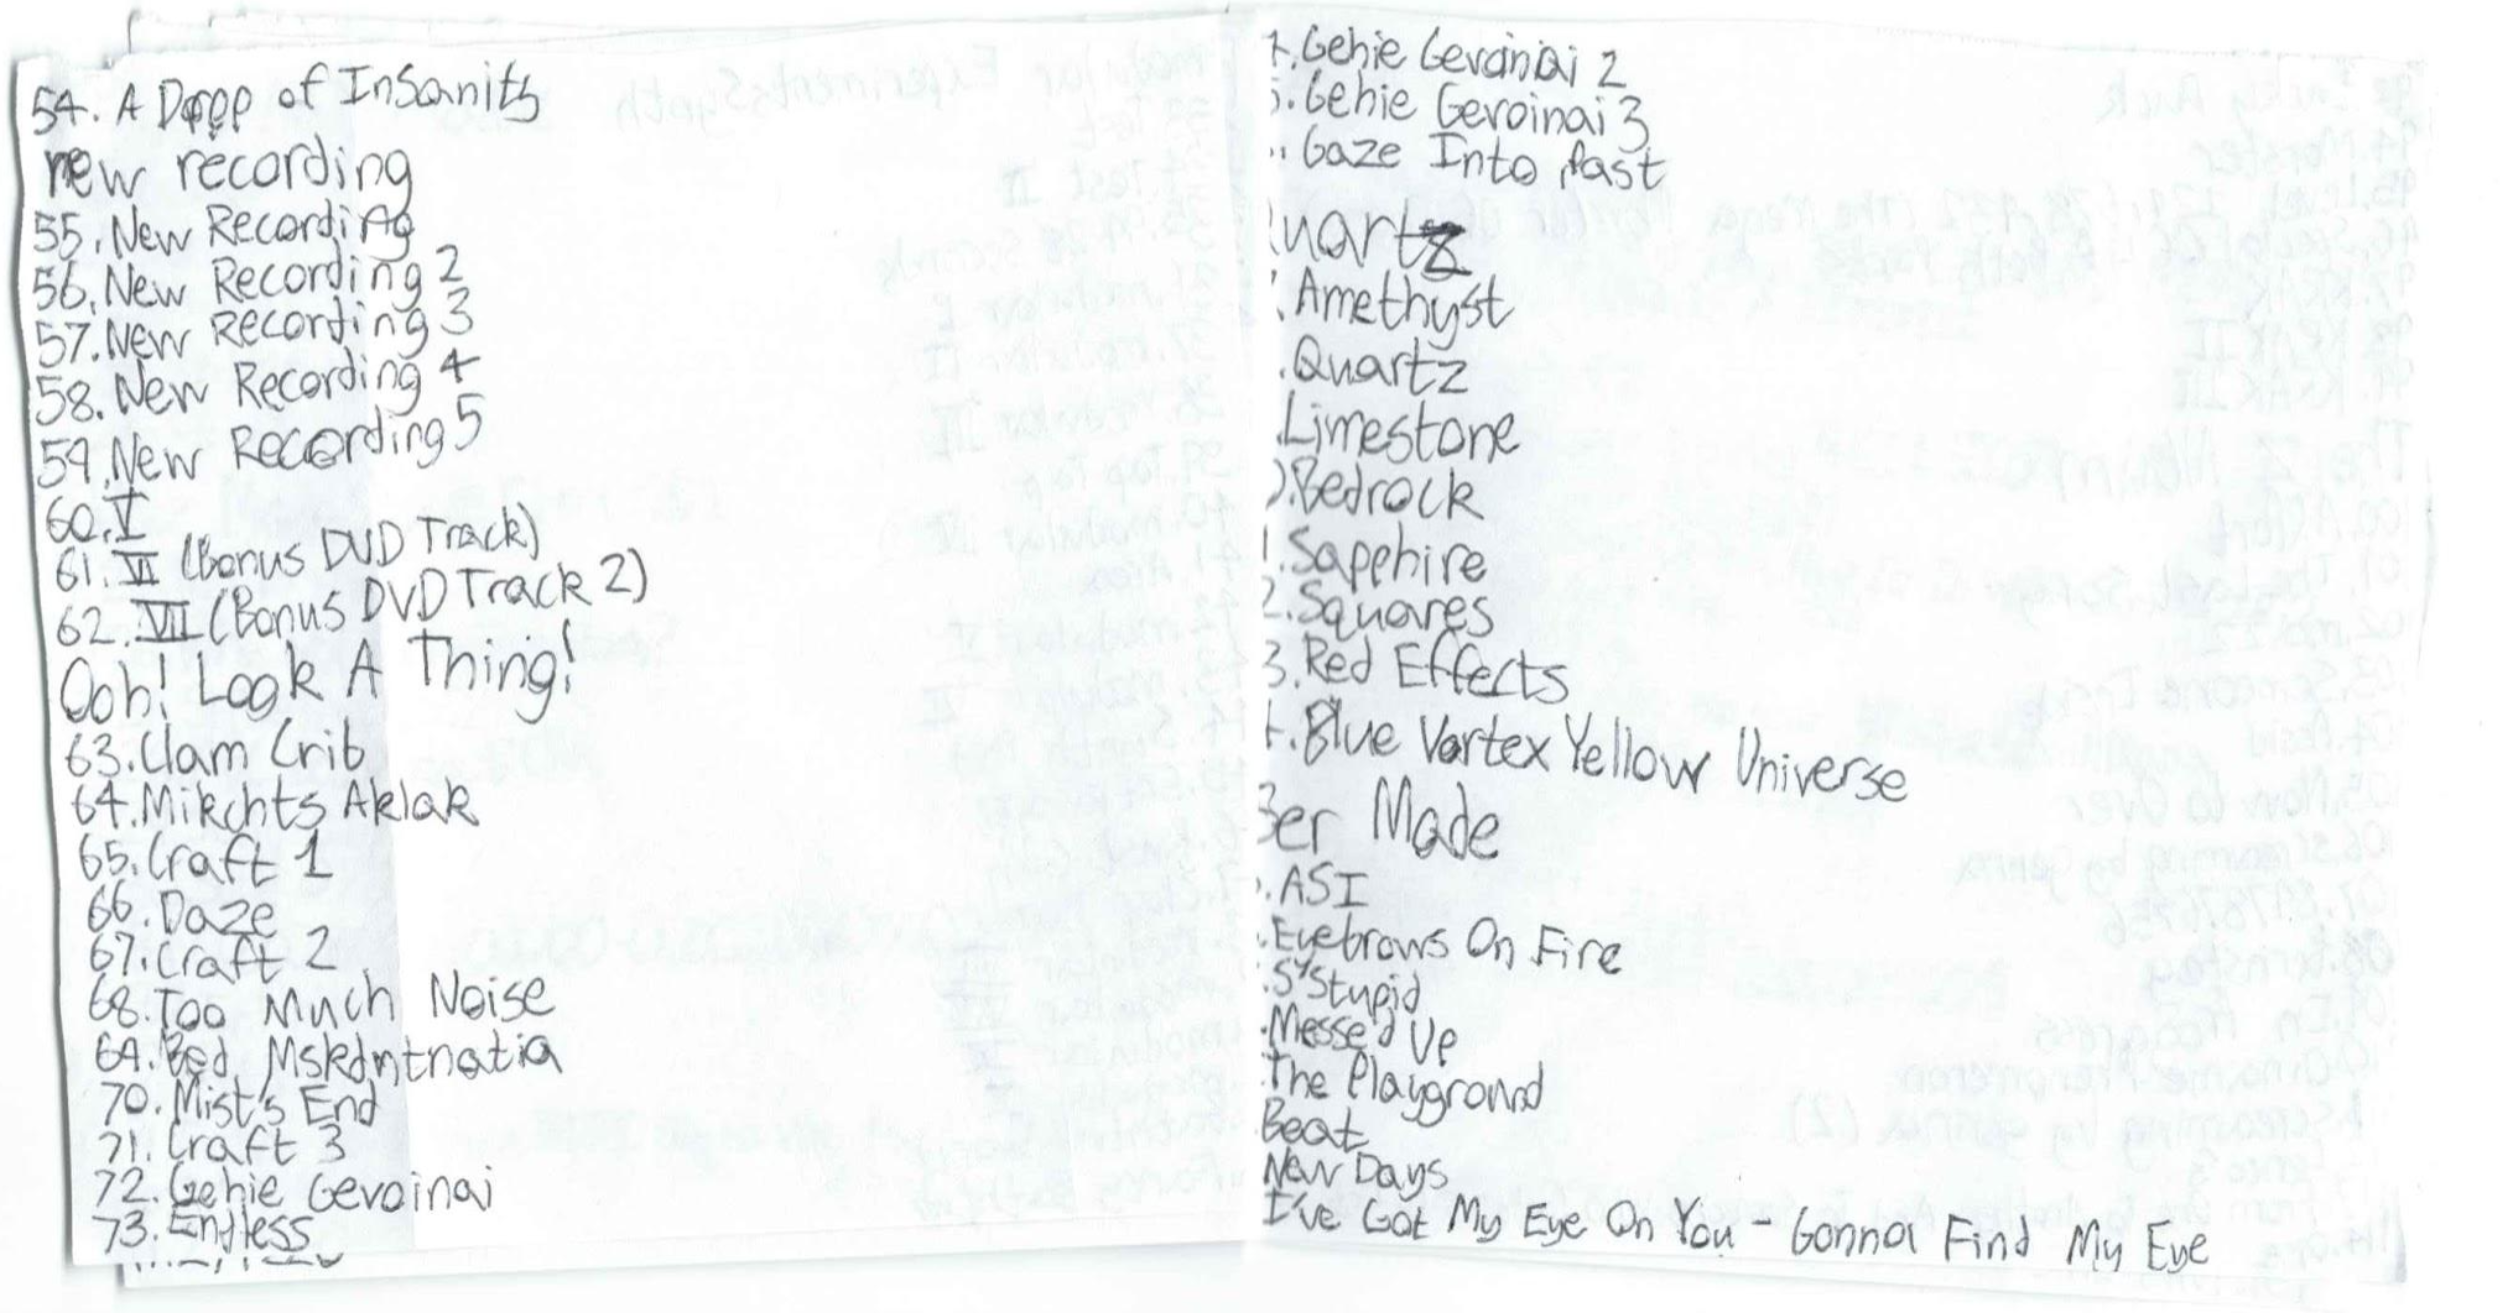 54. A Drop of Insanity
new recording
55. New Recording
56. New Recording 2
57. New Recording 3
58. New Recording 4
59. New Recording 5
60. V
61. VI (Bonus DVD Track)
62. VII (Bonus DVD Track 2)
Ooh! Look A Thing!
63. Clam Crib
64. Mikchts Aklak
65. Craft 1
66. Daze
67. Craft 2
68. Too Much Noise
69. Bed Mskdntnatia
70. Mist's End
71. Craft 3
72. Gehie Gevoinai
73. Endless
. Gehie Gevoiniai 2
. Gehie Gevoinai 3
. Gaze Into Past
uartz
. Amethyst
. Quartz
. Limestone
. Bedrock
1. Sapphire
2. Squares
3. Red Effects
. Blue Vortex Yellow Universe
Ber Made
. ASI
. Eyebrows On Fire
. S'Stupid
. Messe'd Up
. The Playground
Beat
New Days
I've Got My Eye On You - Gonna Find My Eye